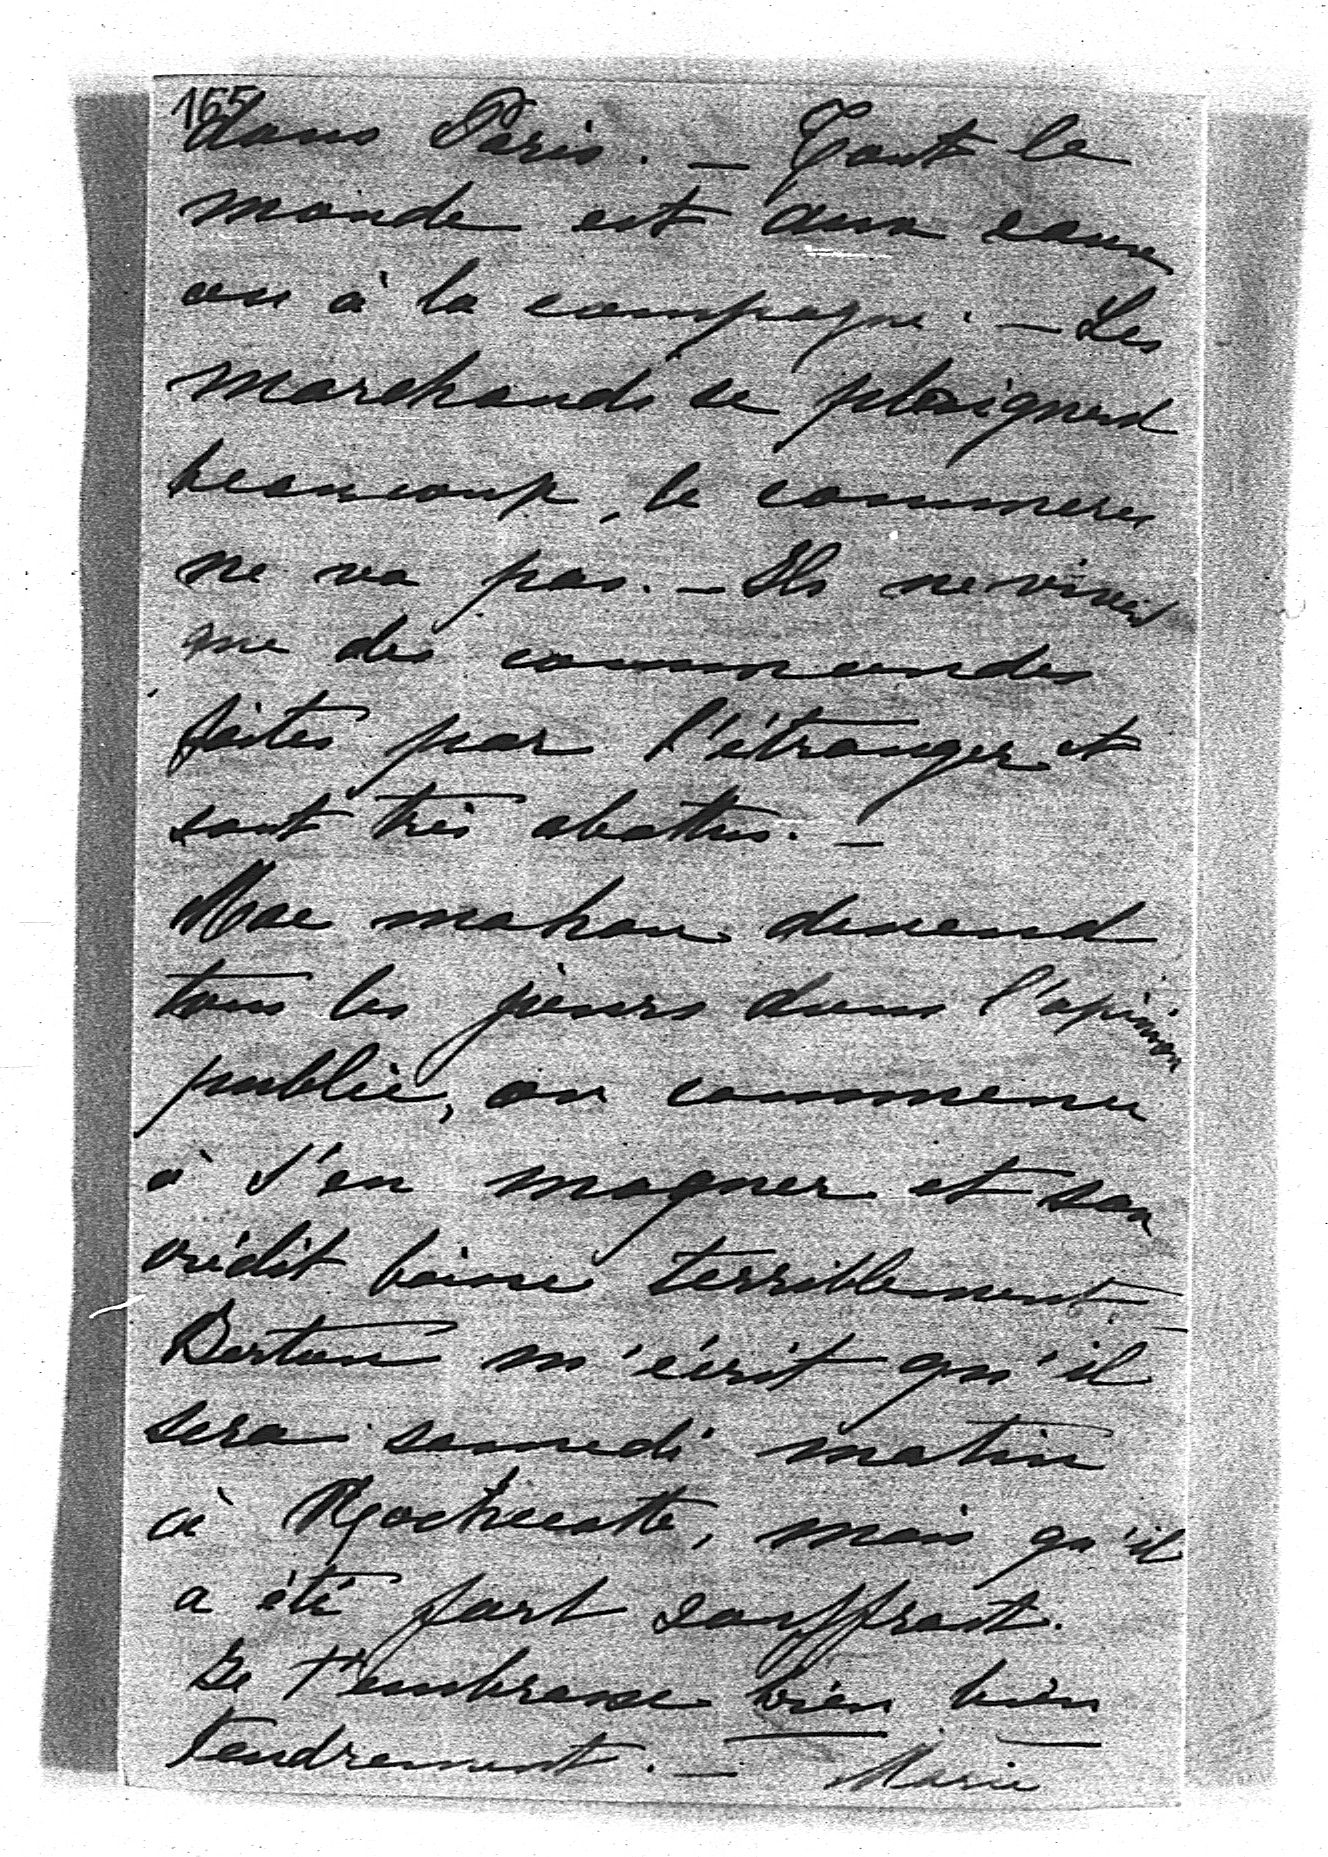 165
dans Paris. — Tout le
monde est aux eaux
ou à la campagne. — Les
marchands se plaignent
beaucoup, le commerce
ne va pas. — Ils ne vivent
que des commandes
faites par l'étranger et
sont très abattus. —
Mac mahon descend
tous les jours dans l'opinion
public, on commence
à s'en moquer et son
crédit baisse terriblement. —
Berton m'écrit qu'il
sera samedi matin
à Rochecotte, mais qu'il
a été fort souffrant.
Je t'embrasse bien bien
tendrement. — Marie